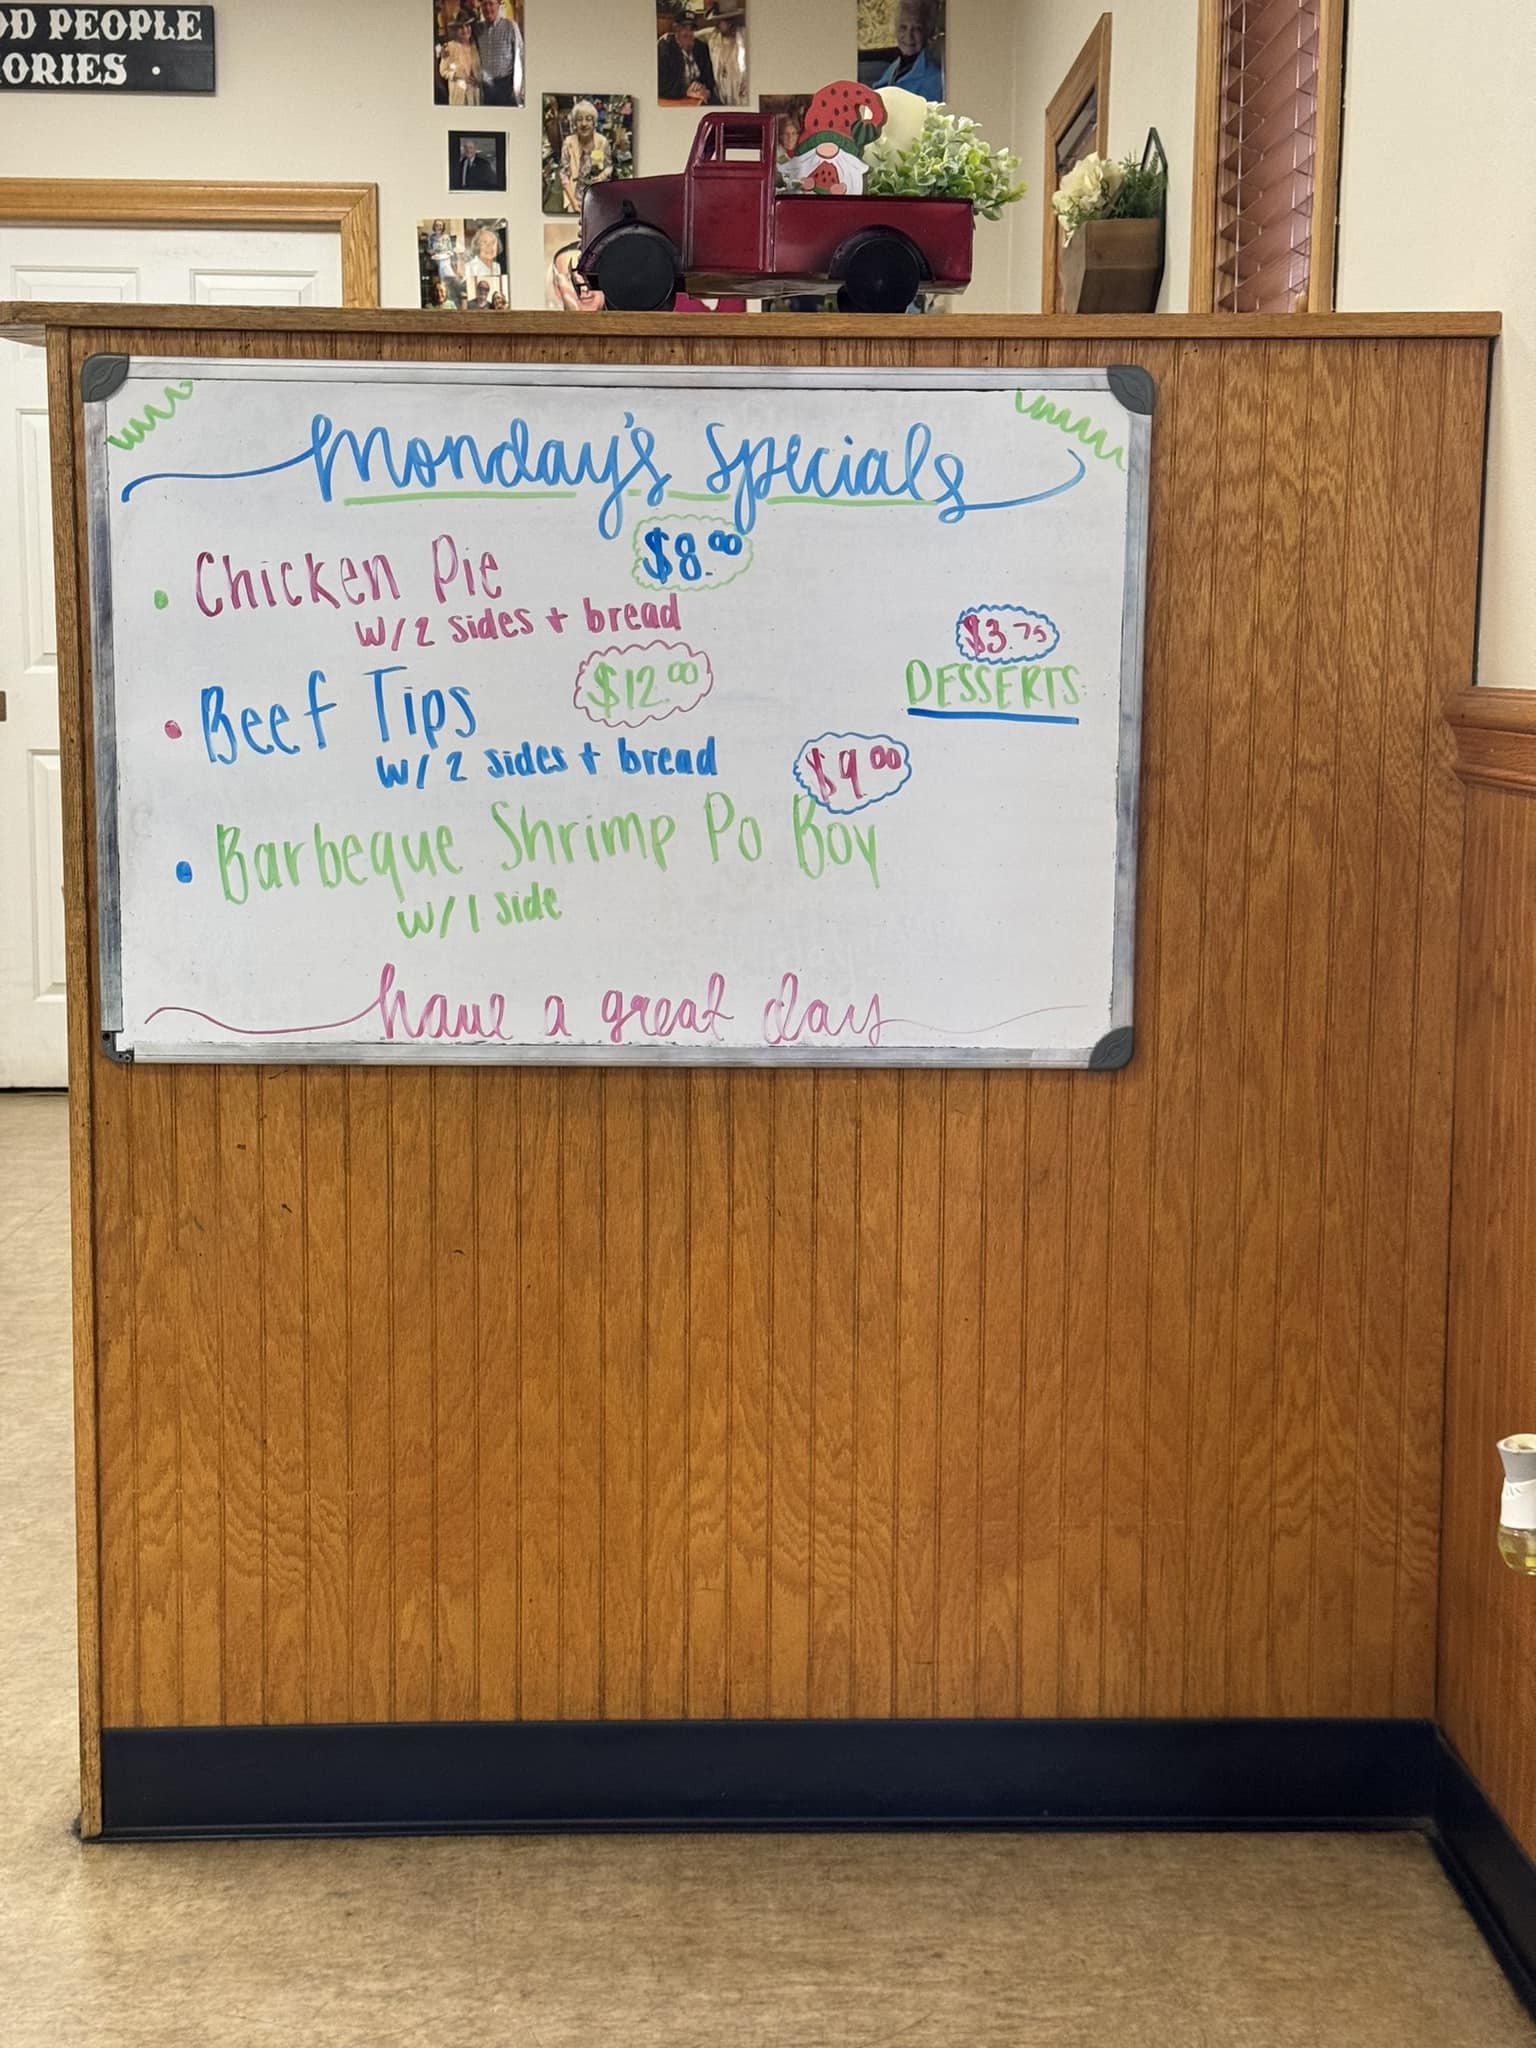 OD PEOPLE
ORIES •
Monday's Specials
• Chicken Pie $8.00
w/2 sides + bread
• Beef Tips $12.00
w/ 2 sides + bread
• Barbeque Shrimp Po Boy $9.00
w/1 side
$3.75
DESSERTS
have a great day